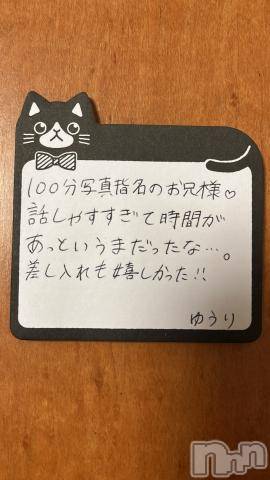 100分写真指名のお兄様♡
話しやすすぎて時間が
あっというまだったな…。
差し入れも嬉しかった!!
ゆうり